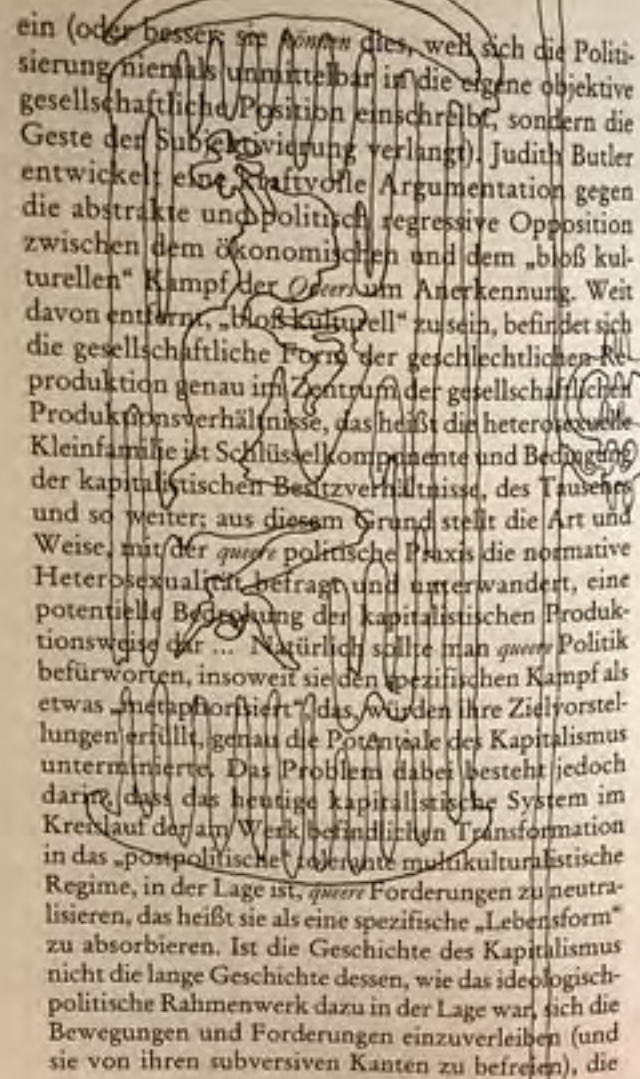 ein (oder besser: sie können dies, weil sich die Politi-
sierung niemals unmittelbar in die eigene objektive
gesellschaftliche Position einschreibt, sondern die
Geste der Subjektivierung verlangt). Judith Butler
entwickelt eine kraftvolle Argumentation gegen
die abstrakte und politisch regressive Opposition
zwischen dem ökonomischen und dem „bloß kul-
turellen“ Kampf der Queers um Anerkennung. Weit
davon entfernt, „bloß kulturell“ zu sein, befindet sich
die gesellschaftliche Form der geschlechtlichen Re-
produktion genau im Zentrum der gesellschaftlichen
Produktionsverhältnisse, das heißt die heterosexuelle
Kleinfamilie ist Schlüsselkomponente und Bedingung
der kapitalistischen Besitzverhältnisse, des Tausches
und so weiter; aus diesem Grund stellt die Art und
Weise, mit der queere politische Praxis die normative
Heterosexualität befragt und unterwandert, eine
potentielle Bedrohung der kapitalistischen Produk-
tionsweise dar ... Natürlich sollte man queere Politik
befürworten, insoweit sie den spezifischen Kampf als
etwas „metaphorisiert“, das, würden ihre Zielvorstel-
lungen erfüllt, genau die Potentiale des Kapitalismus
unterminierte. Das Problem dabei besteht jedoch
darin, dass das heutige kapitalistische System im
Kreislauf der am Werk befindlichen Transformation
in das „postpolitische“ tolerante multikulturalistische
Regime, in der Lage ist, queere Forderungen zu neutra-
lisieren, das heißt sie als eine spezifische „Lebensform“
zu absorbieren. Ist die Geschichte des Kapitalismus
nicht die lange Geschichte dessen, wie das ideologisch-
politische Rahmenwerk dazu in der Lage war, sich die
Bewegungen und Forderungen einzuverleiben (und
sie von ihren subversiven Kanten zu befreien), die